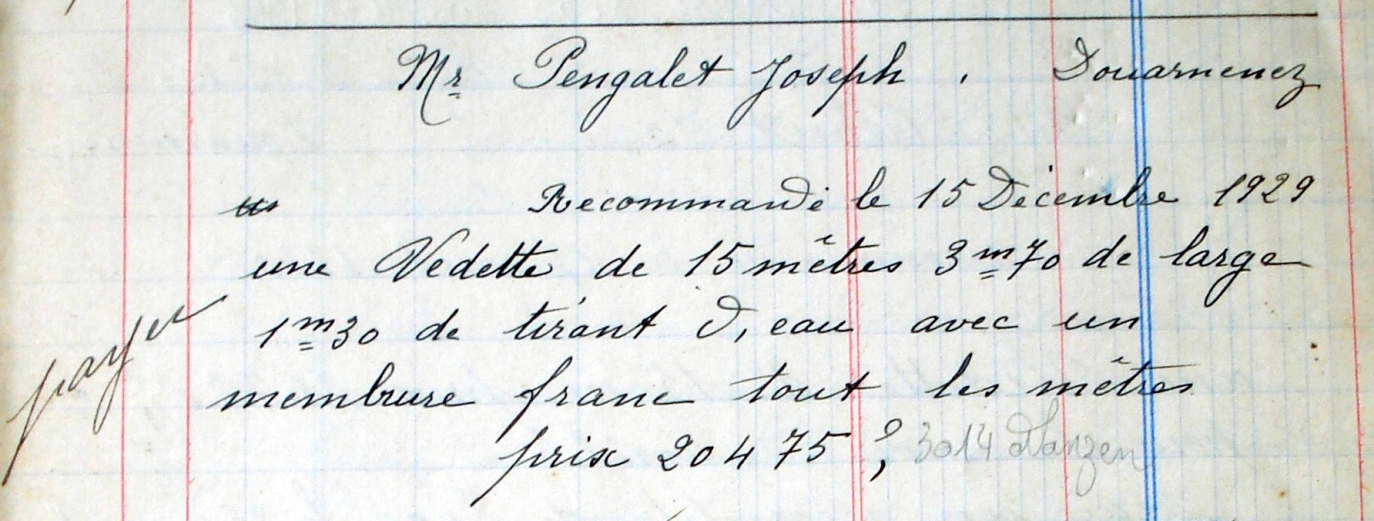 Mr Pengalet Joseph . Douarnenez
Recommandé le 15 Décembre 1929
une Vedette de 15 mètres 3m70 de large
1m30 de tirant d, eau avec un
payer
membrure franc tout les mètres
prix 20475 ? 3014